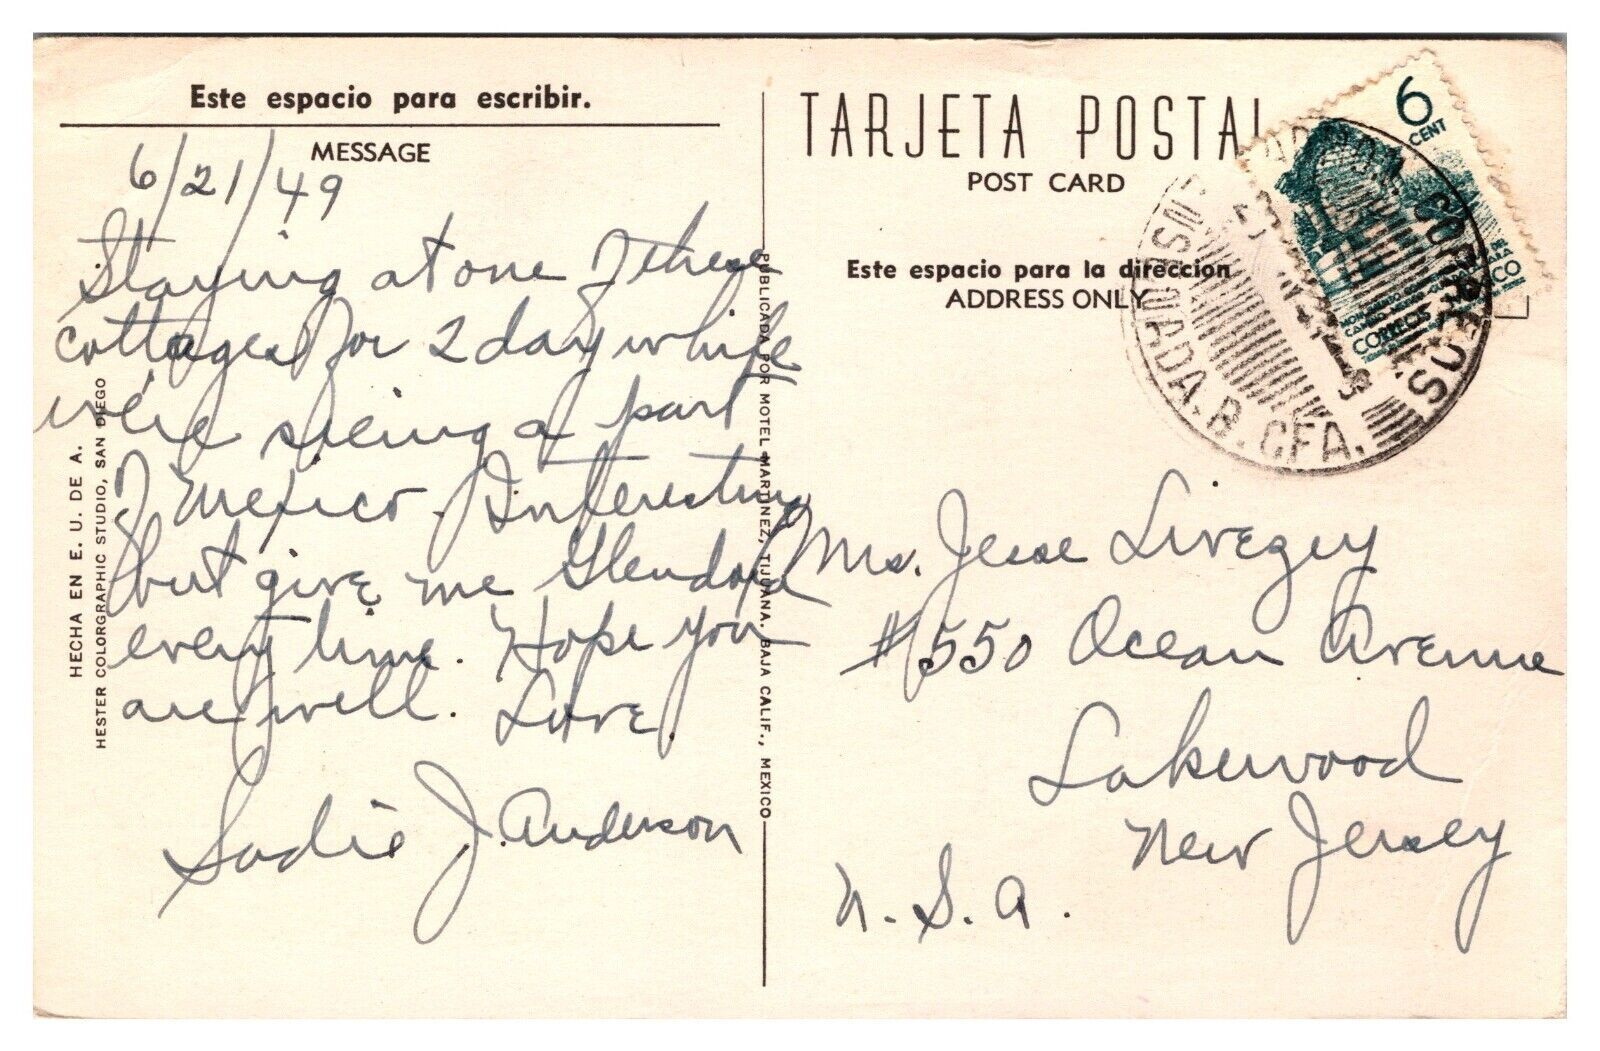 Este espacio para escribir.
MESSAGE
6/21/49
Staying at one of these
cottages for 2 days while
we're seeing a part
of Mexico. Interesting
but give me Glendora
every time. Hope you
are well. Love.
Sadie J. Anderson
HECHA EN E. U. DE A.
HESTER COLORGRAPHIC STUDIO, SAN DIEGO
PUBLICADA POR MOTEL MARTINEZ, TIJUANA, BAJA CALIF., MEXICO
TARJETA POSTAL
POST CARD
Este espacio para la direccion
ADDRESS ONLY
6
CENT
MEXICO
CORREOS
CORREOS.
ENSENADA. B. CFA.
Mrs. Jesse Livezey
#550 Ocean Avenue
Lakewood
New Jersey
U. S. A.